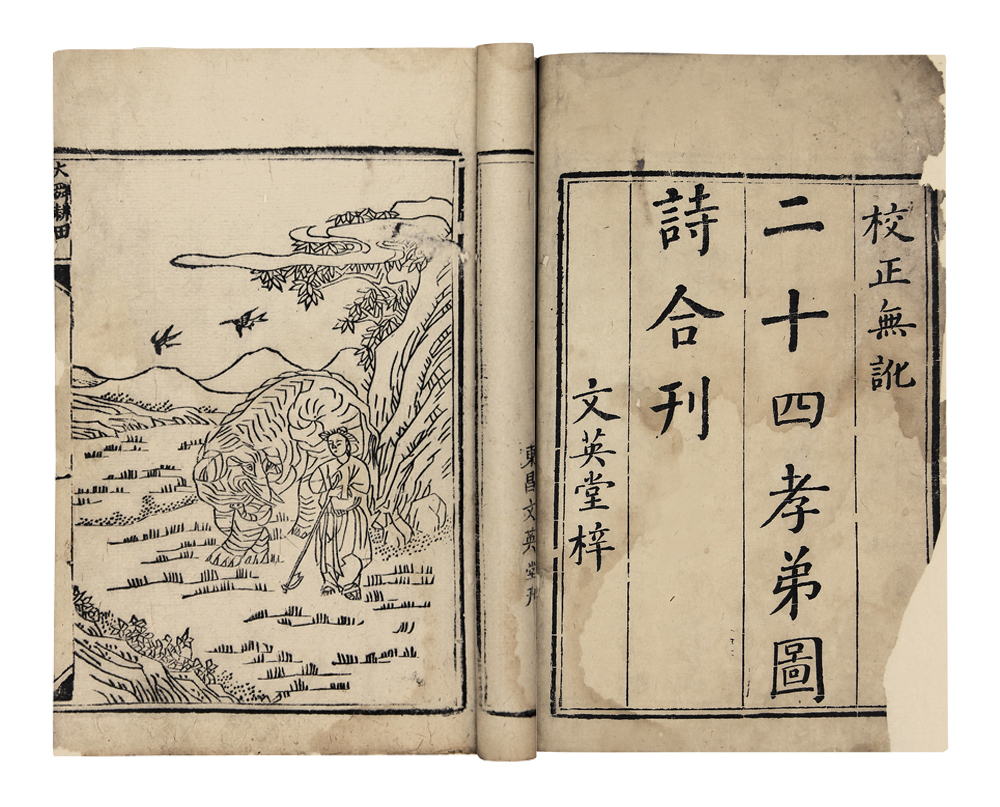 校正無訛
二十四孝弟圖
詩合刊
文英堂梓
東昌文英堂刊
大舜耕田